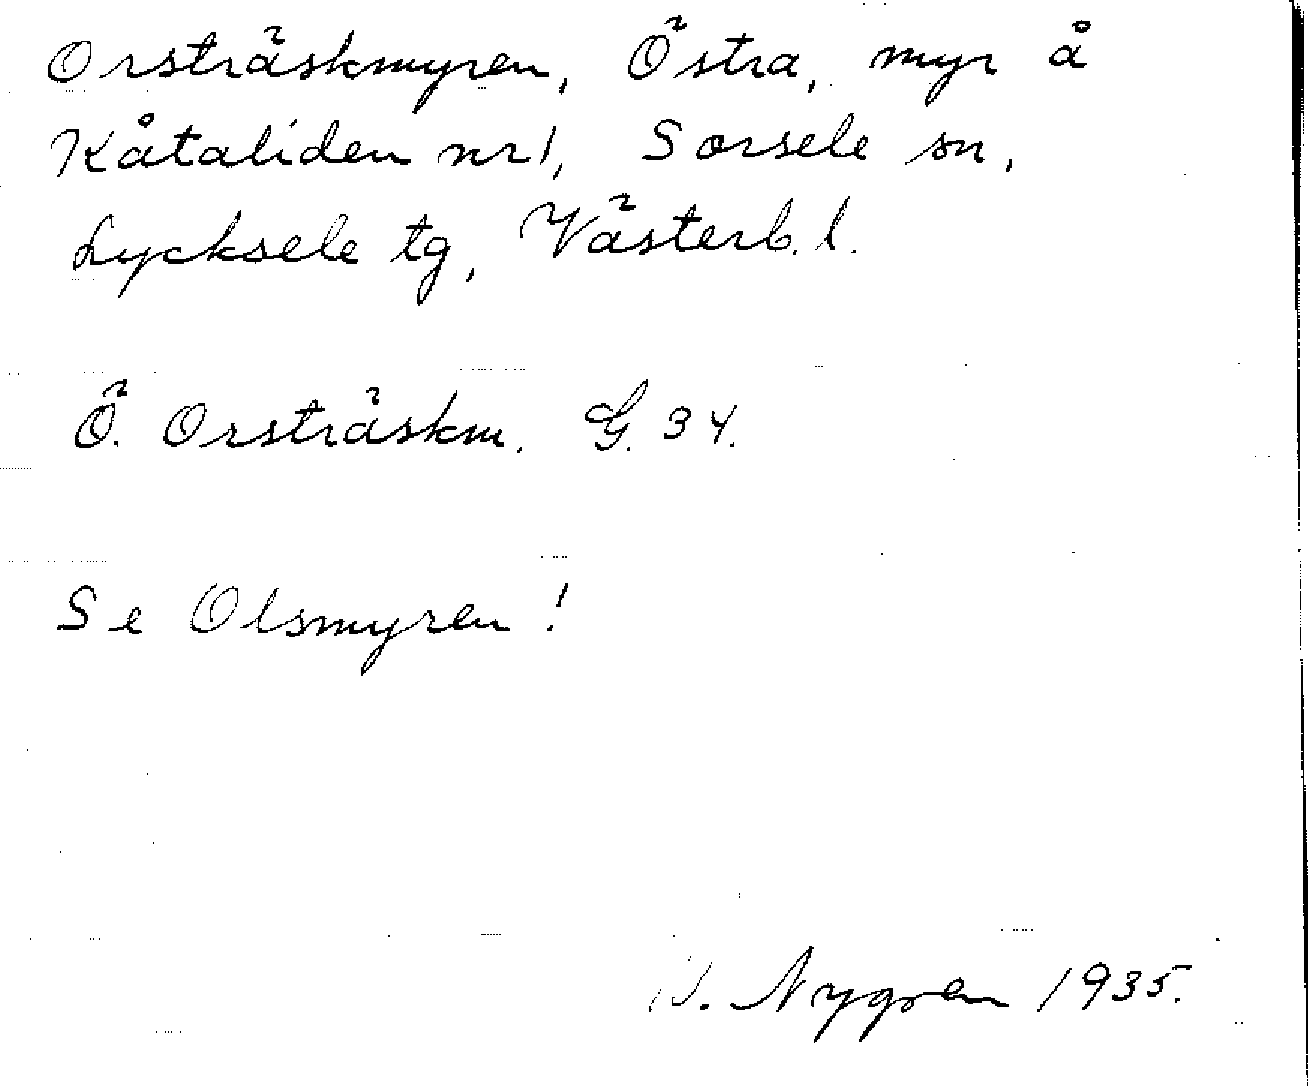 Orsträskmyren, Östra, myr å
Kåtaliden nr 1, Sorsele sn,
Lycksele tg, Västerb. l.
Ö. Orsträskm. G. 34.
Se Olsmyren!
Nygren 1935.